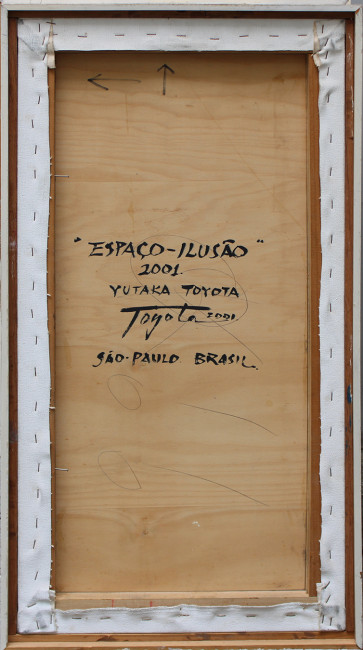 "ESPAÇO-ILUSÃO"
2001.
YUTAKA TOYOTA
Toyota 2001
SÃO-PAULO BRASIL.